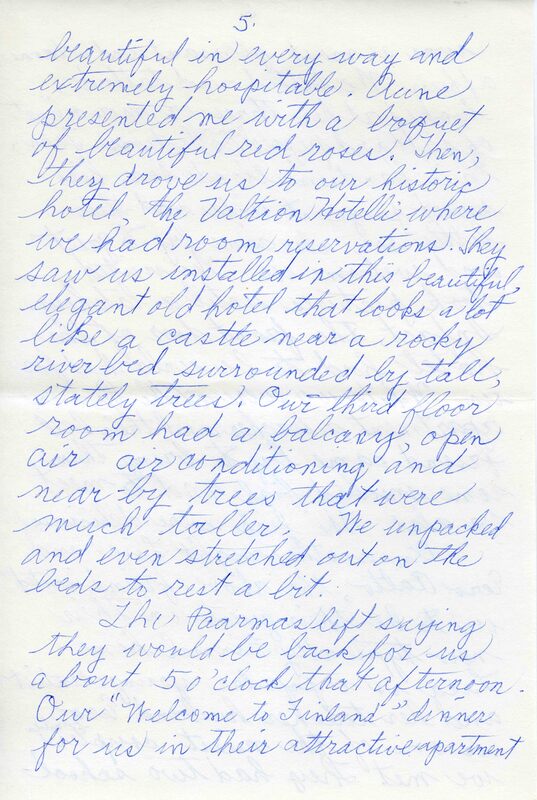 5.
beautiful in every way and
extremely hospitable. Aune
presented me with a boquet
of beautiful red roses. Then,
they drove us to our historic
hotel, the Valtion Hotelli where
we had room reservations. They
saw us installed in this beautiful,
elegant old hotel that looks a lot
like a castle near a rocky
river bed surrounded by tall,
stately trees. Our third floor
room had a balcany, open
air air conditioning and
near-by trees that were
much taller. We unpacked
and even stretched out on the
beds to rest a bit.
The Paarmas left saying
they would be back for us
about 5 o'clock that afternoon.
Our "Welcome to Finland" dinner
for us in their attractive apartment